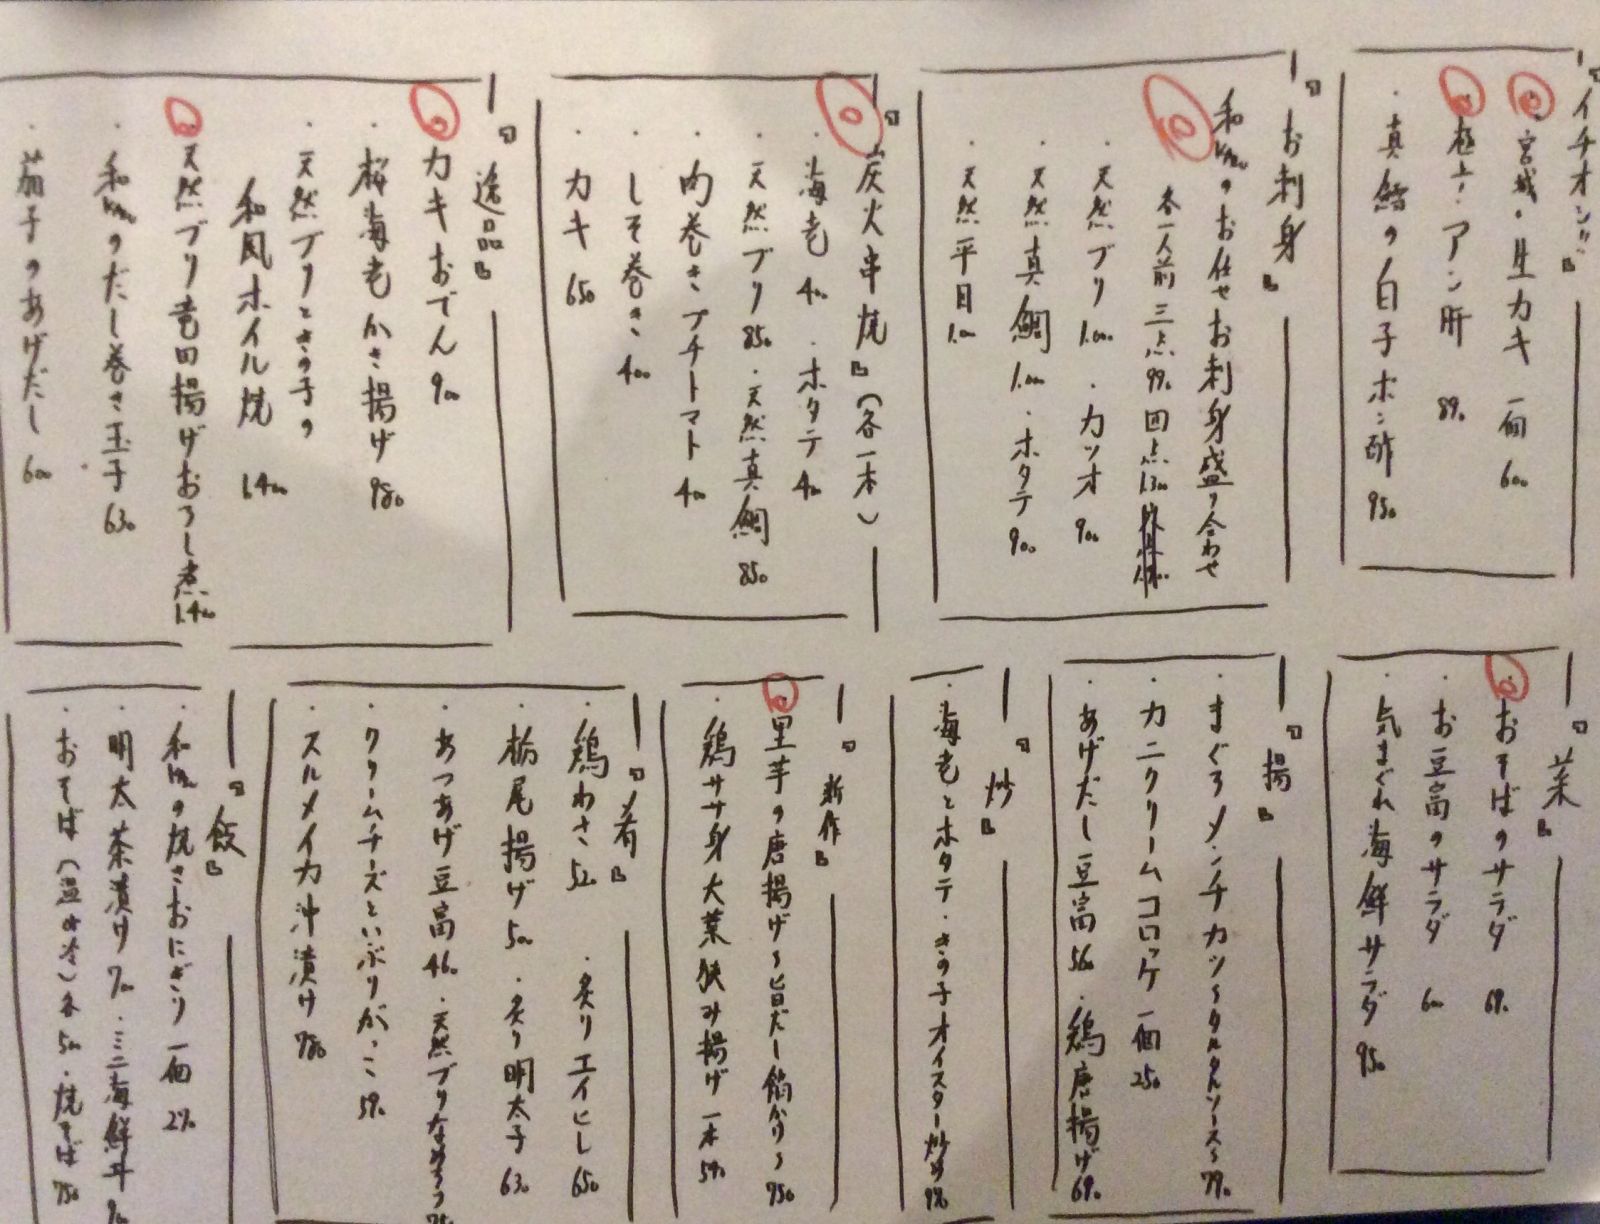 『イチオシ!!』
・宮城・生カキ 一個 600
・極上!アン肝 890
・真鱈の白子ポン酢 950
『お刺身』
和のお任せお刺身盛り合わせ
各一人前 三点 990 四点 1.300
・天然ブリ 1.000 ・カツオ 900
・天然真鯛 1.000 ・ホタテ 900
・天然平目 1.000
『炭火串焼』(各一本)
・海老 400 ・ホタテ 400
・天然ブリ 850 ・天然真鯛 850
・肉巻きプチトマト 400
・しそ巻き 400
・カキ 650
『逸品』
・カキおでん 900
・桜海老かき揚げ 980
・天然ブリときの子の
和風ホイル焼 1.400
・天然ブリ竜田揚げおろし煮 1.400
・和のだし巻き玉子 630
・茄子のあげだし 600
『菜』
・おそばのサラダ 690
・お豆富のサラダ 600
・気まぐれ海鮮サラダ 950
『揚』
・まぐろメンチカツ〜タルタルソース〜 790
・カニクリームコロッケ 一個 250
・あげだし豆富 560 ・鶏唐揚げ 690
『炒』
・海老とホタテ・きの子オイスター炒め 990
『新作』
・里芋の唐揚げ〜旨だし餡かけ〜 950
・鶏ササ身大葉挟み揚げ 一本 590
『肴』
・鶏わさ 520 ・炙りエイヒレ 650
・栃尾揚げ 500 ・炙り明太子 630
・あつあげ豆富 460 ・天然ブリなめろう
・クリームチーズといぶりがっこ 590
・スルメイカ沖漬け 780
『飯』
・和の焼きおにぎり 一個 290
・明太茶漬け 700 ・ミニ海鮮丼
・おそば(温or冷)各 500 ・焼そば 750